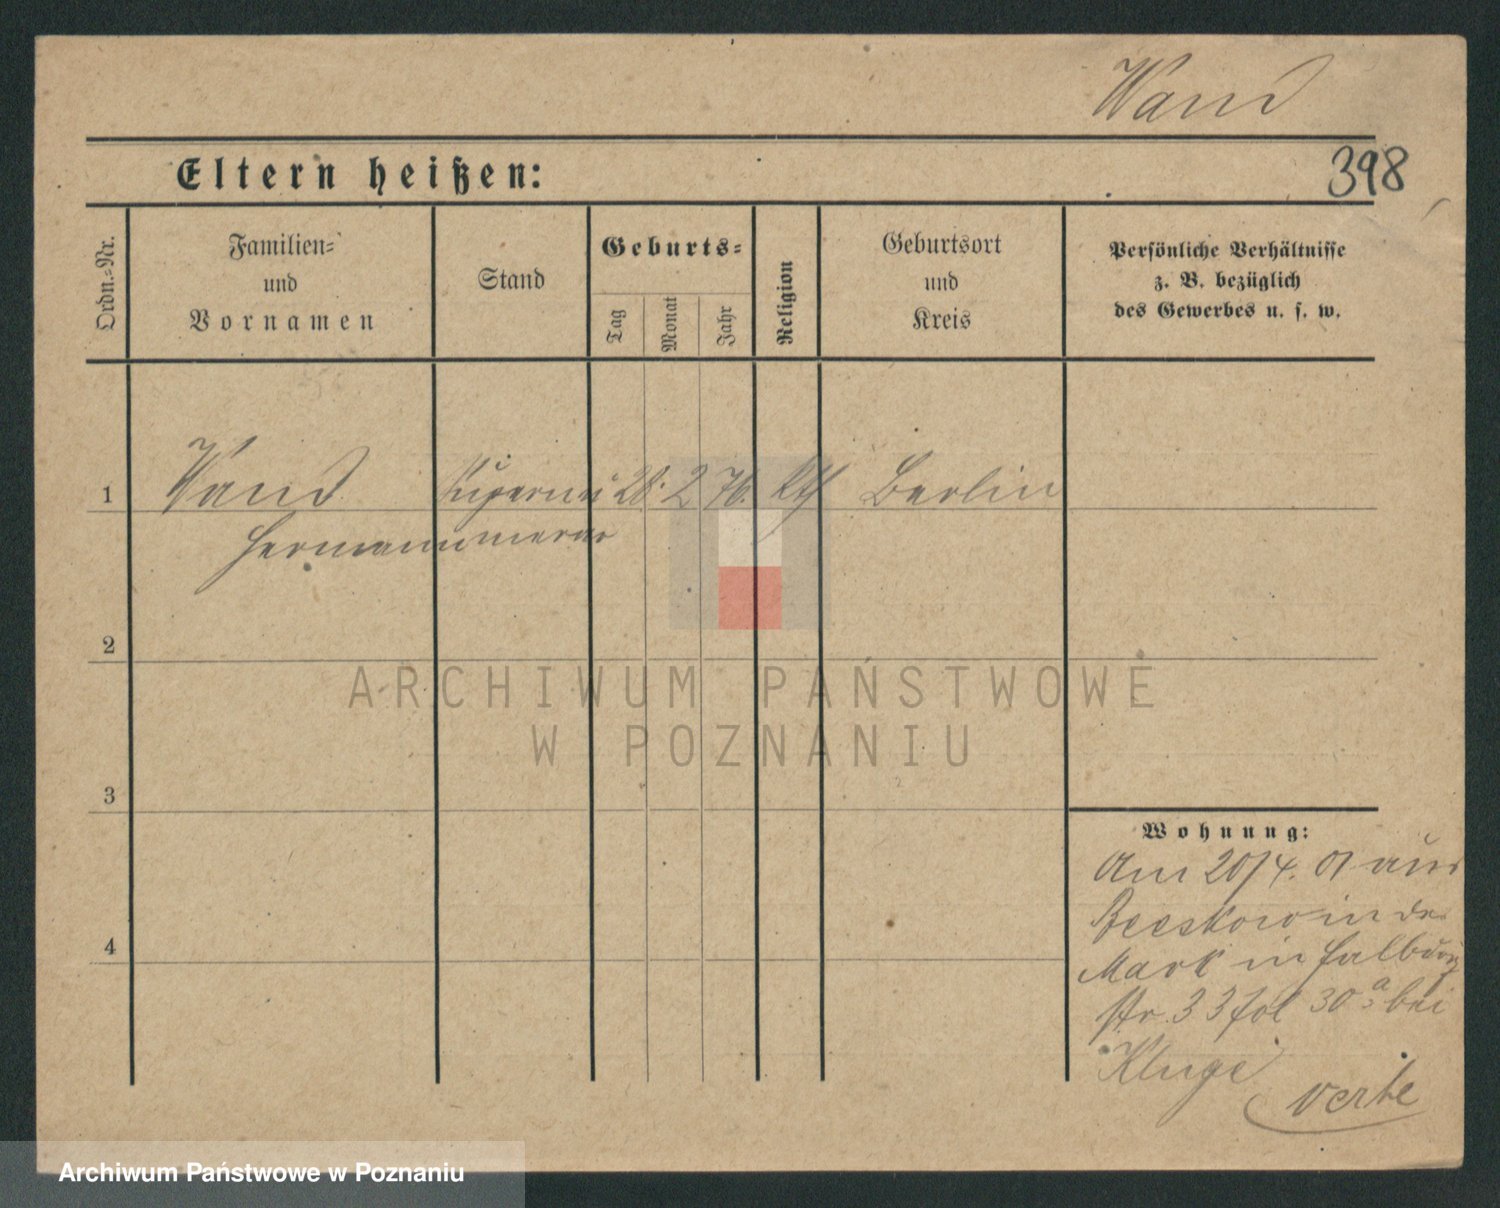 Wand
398
Eltern heißen:
Ordn.-Nr.
Familien-
und
Vornamen
Stand
Geburts-
Tag
Monat
Jahr
Religion
Geburtsort
und
Kreis
Persönliche Verhältnisse
z. B. bezüglich
des Gewerbes u. s. w.
1
Wand Supernu 28. 2 76. kth Berlin
Hermann merar
2
3
4
Wohnung:
Am 20/4. 01 aus
Beeskow in der
Mark in
str. 33 fol 30a bei
Kluge
verte
ARCHIWUM PAŃSTWOWE
W POZNANIU
Archiwum Państwowe w Poznaniu